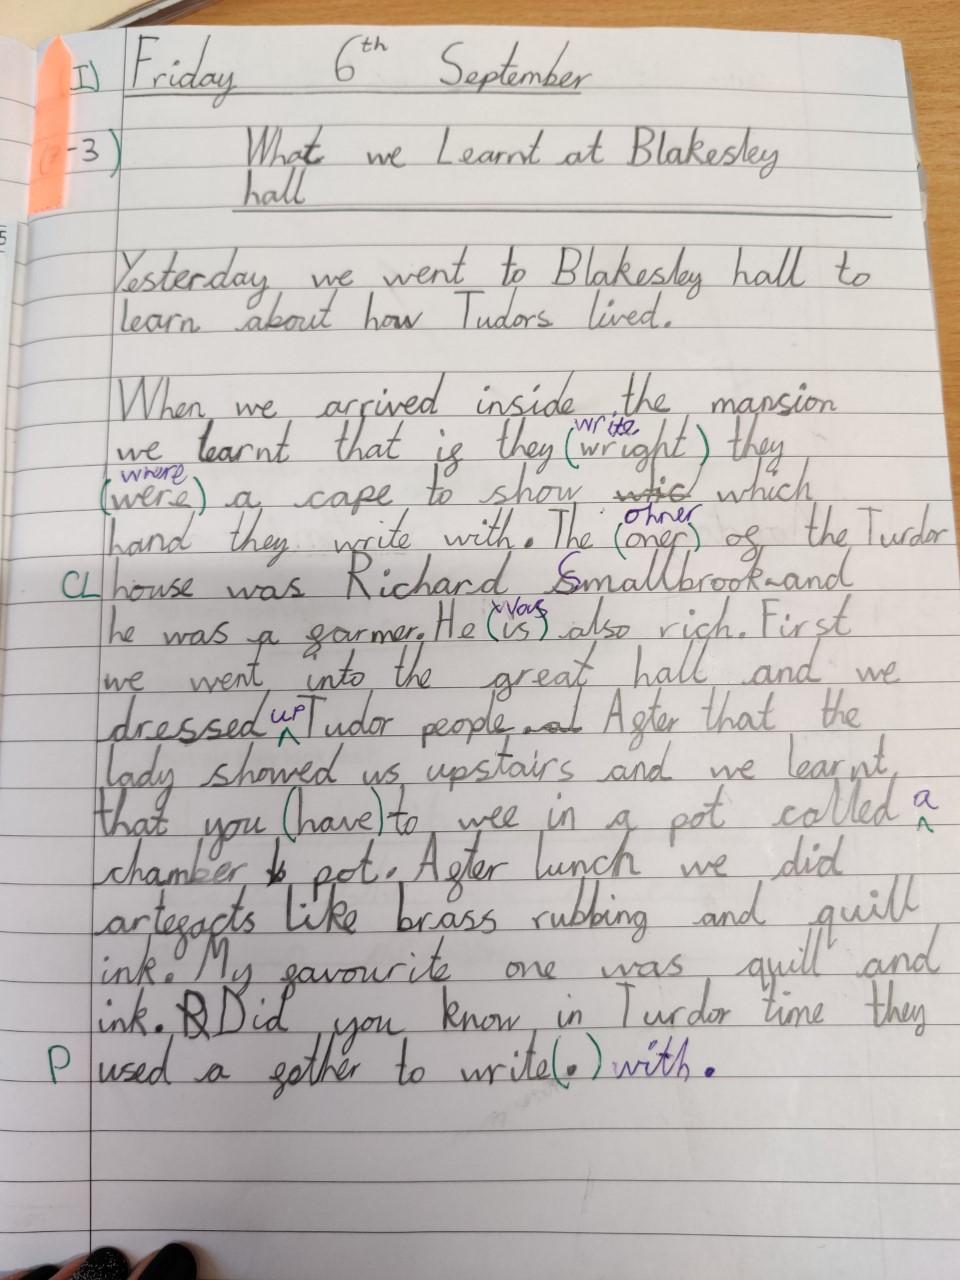 I) Friday 6th September
-3) What we Learnt at Blakesley
hall
Yesterday we went to Blakesley hall to
learn about how Tudors lived.
When we arrived inside the mansion
write
we learnt that if they (wright) they
where
(were) a cape to show which
ohner
hand they write with. The (oner) of the Turdor
CL house was Richard Smallbrook and
was
he was a farmer. He (is) also rich. First
we went into the great hall and we
dressed up Tudor people. After that the
lady showed us upstairs and we learnt
a
that you (have) to wee in a pot called
chamber pot. After lunch we did
artefacts like brass rubbing and quill
ink. My favourite one was quill and
ink. Did you know in Turdor time they
P used a gether to write(.) with.
5